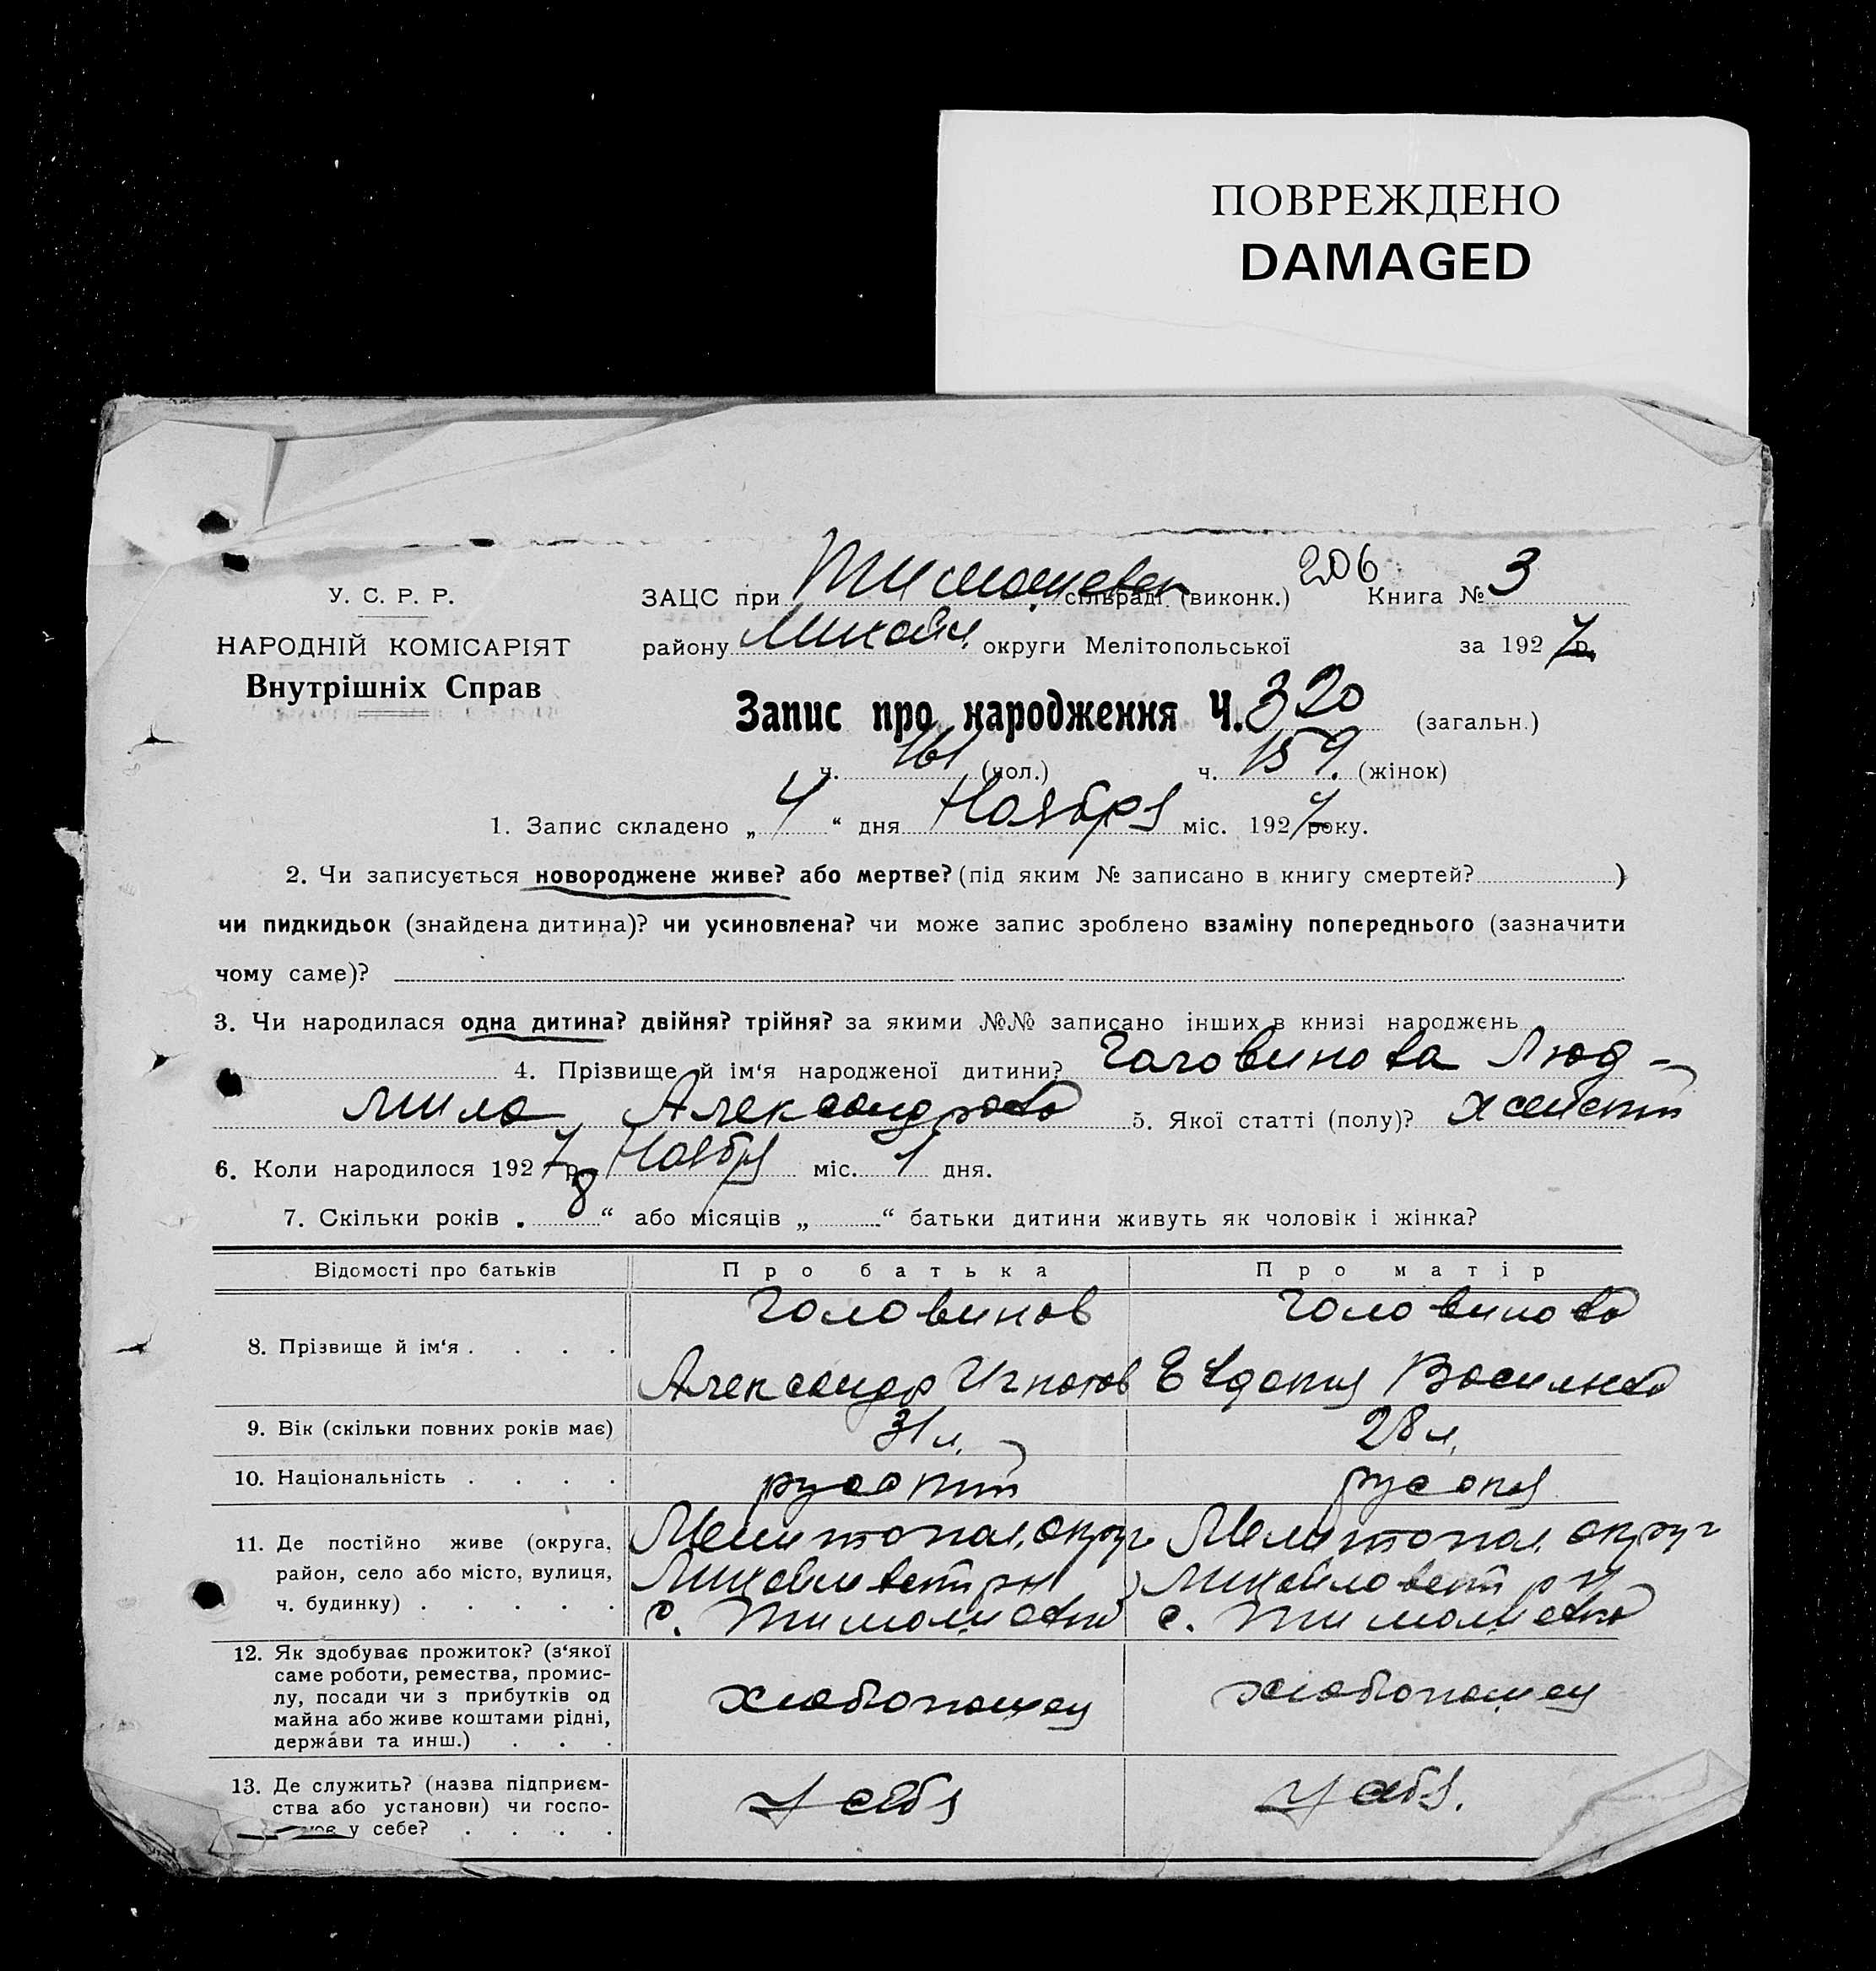 ПОВРЕЖДЕНО
DAMAGED
206
У. С. Р. Р.
НАРОДНІЙ КОМІСАРІЯТ
Внутрішніх Справ
ЗАЦС при Тимошевск сільраді (виконк.) Книга № 3
району Михайл. округи Мелітопольської за 1927 р.
Запис про народження Ч. 320 (загальн.)
ч. 161 (чол.) ч. 159. (жінок)
1. Запис складено „ 4 “ дня Ноября міс. 1927 року.
2. Чи записується новороджене живе? або мертве? (під яким № записано в книгу смертей? )
чи пидкидьок (знайдена дитина)? чи усиновлена? чи може запис зроблено взаміну попереднього (зазначити
чому саме)?
3. Чи народилася одна дитина? двійня? трійня? за якими №№ записано інших в книзі народжень
4. Прізвище й ім‘я народженої дитини? Головинова Люд-
мила Александровна 5. Якої статті (полу)? женский
6. Коли народилося 1927 р. Ноября міс. 1 дня.
7. Скільки років „ 8 “ або місяців „ “ батьки дитини живуть як чоловік і жінка?
Відомості про батьків Про батька Про матір
8. Прізвище й ім‘я . . . . Головинов Головинова
Александр Игнатов Евдокия Васильевна
9. Вік (скільки повних років має) 31 л. 28 л.
10. Національність . . . . русский русская
11. Де постійно живе (округа, Мелитопол. округ Мелитопол. округ
район, село або місто, вулиця, Михайловский рн Михайловский рн
ч. будинку) . . . . . с. Тимошевка с. Тимошевка
12. Як здобуває прожиток? (з‘якої
саме роботи, ремества, промис-
лу, посади чи з прибутків од хлебопашец хлебопашец
майна або живе коштами рідні,
держа́ви та инш.) . . .
13. Де служить? (назва підприєм-
ства або установи) чи госпо- у себя у себя.
у себе? . . . .